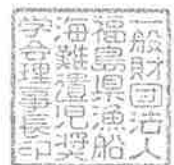 一般財団法人
福島県漁船
海難遺児奨
学会理事長印